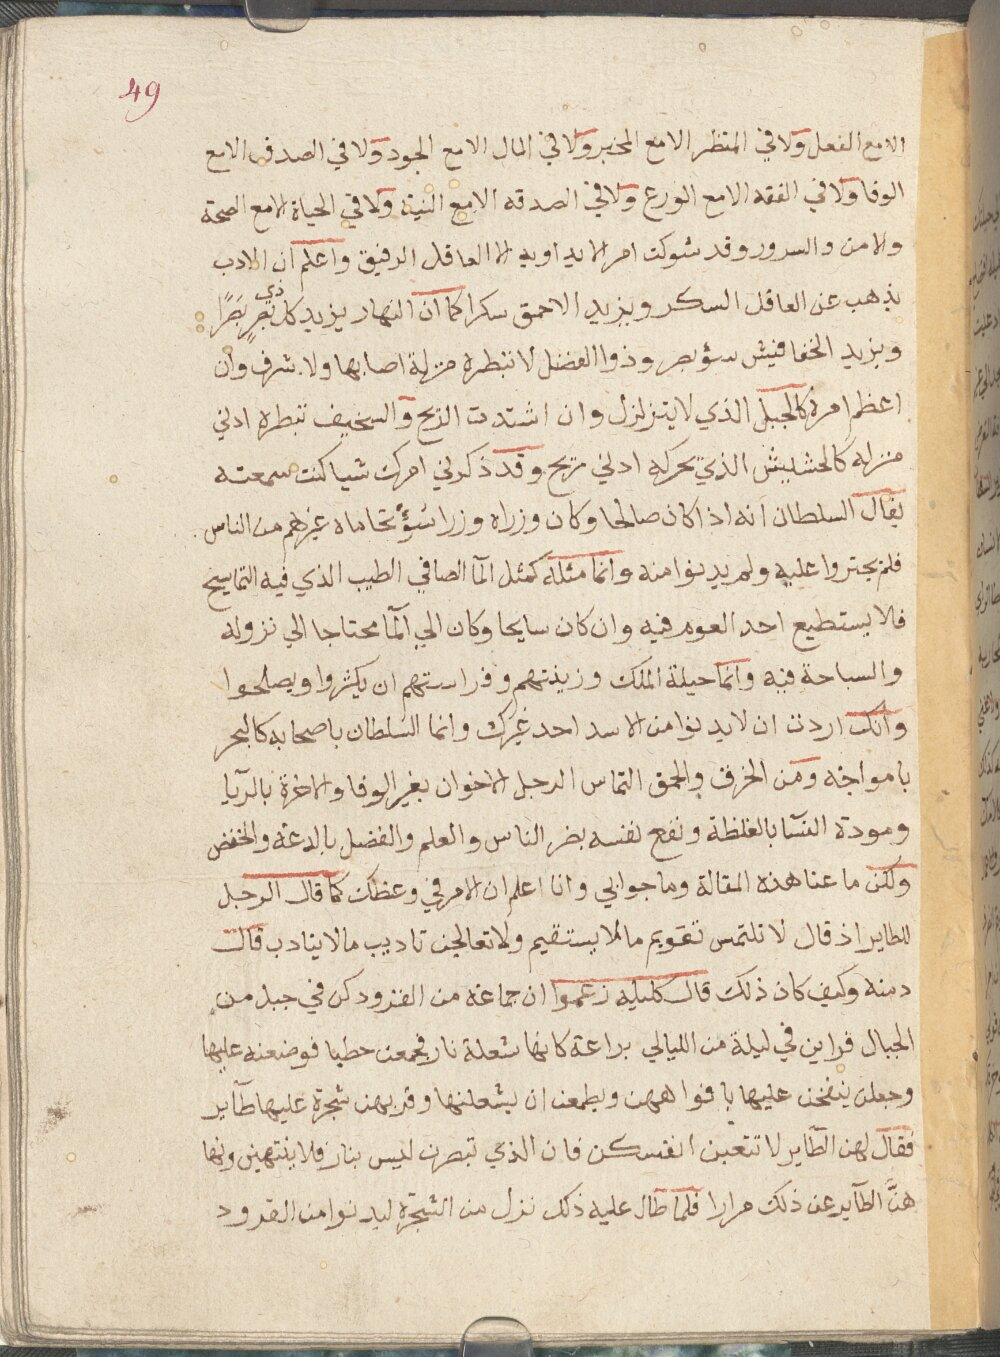 49
الا مع الفعل ولا في المنظر الا مع المخبر ولا في المال الا مع الجود ولا في الصدق الا مع
الوفا ولا في الفقه الا مع الورع ولا في الصدقه الا مع النية ولا في الحياة الا مع الصحة
والامن والسرور وقد شوكت امر لا يداويه الا العاقل الرفيق واعلم ان الادب
يذهب عن العاقل السكر ويزيد الاحمق سكرا كما ان النهار يزيد كل ذي بصرٍ بَصَرًا
ويزيد الخفافيش سؤ بصر وذوا الفضل لا تبطره منزلة اصابها ولا شرف وان
اعظم امره كالجبل الذي لا يتزلزل وان اشتدت الريح والسخيف تبطره ادني
منزله كالحشيش الذي تحركه ادني ريح وقد ذكرني امرك شيا كنت سمعته
يقال السلطان انه اذا كان صالحا وكان وزراه وزرا سُؤٍ تحاماه غيرهم من الناس
فلم يجتروا عليه ولم يدنوا منه وانما مثله كمثل المآ الصافي الطيب الذي فيه التماسيح
فلا يستطيع احد العوم فيه وان كان سابحا وكان الي المآ محتاجا الي نزوله
والسباحة فيه وانما حيلة الملك وزينتهم وفراستهم ان يكثروا ويصلحوا
وانك اردت ان لا يدنوا من الاسد احد غيرك وانما السلطان باصحابه كالبحر
بامواجه ومن الخرق والحمق التماس الرجل الاخوان بغير الوفا والاخرة بالريا
ومودة النسآ بالغلظة ونفع لنفسه بضر الناس والعلم والفضل بالدعة والخفض
ولكن ما عنا هذه المقالة وما جوابي وانا اعلم ان الامر في وعظك كما قال الرجل
للطاير اذ قال لا تلتمس تقويم ما لا يستقيم ولا تعالجن تاديب ما لا يتادب قال
دمنه وكيف كان ذلك قال كليله زعموا ان جماعة من القرود كن في جبل من
الجبال فراين في ليلة من الليالي يراعة كانها شعلة نار فجمعن حطبا فوضعنه عليها
وجعلن ينفخن عليها بافواههن ويطمعن ان يشعلنها وقربهن شجرة عليها طآير
فقال لهن الطآير لا تتعبن انفسكن فان الذي تبصرن ليس بنار فلا ينتهين ونها
هنَّ الطآير عن ذلك مرارا فلما طال عليه ذلك نزل من الشجرة ليدنوا من القرود